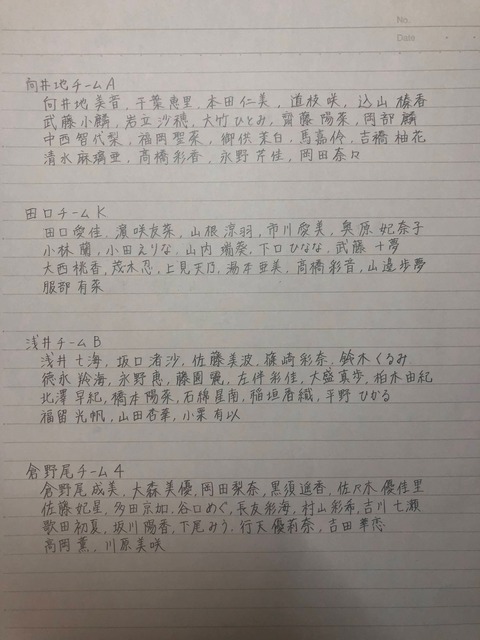 No.
Date
向井地チームA
向井地美音, 千葉恵里, 本田仁美, 道枝咲, 込山榛香
武藤小麟, 岩立沙穂, 大竹ひとみ, 齋藤陽菜, 岡部麟
中西智代梨, 福岡聖菜, 御供茉白, 馬嘉伶, 吉橋柚花
清水麻璃亜, 高橋彩香, 永野芹佳, 岡田奈々
田口チームK
田口愛佳, 濵咲友菜, 山根涼羽, 市川愛美, 奥原妃奈子
小林蘭, 小田えりな, 山内瑞葵, 下口ひなな, 武藤十夢
大西桃香, 茂木忍, 上見天乃, 湯本亜美, 高橋彩音, 山邊歩夢
服部有菜
浅井チームB
浅井七海, 坂口渚沙, 佐藤美波, 篠崎彩奈, 鈴木くるみ
徳永羚海, 永野恵, 藤園麗, 左伴彩佳, 大盛真歩, 柏木由紀
北澤早紀, 橋本陽菜, 石綿星南, 稲垣香織, 平野ひかる
福留光帆, 山田杏華, 小栗有以
倉野尾チーム4
倉野尾成美, 大森美優, 岡田梨奈, 黒須遥香, 佐々木優佳里
佐藤妃星, 多田京加, 谷口めぐ, 長友彩海, 村山彩希, 吉川七瀬
歌田初夏, 坂川陽香, 下尾みう, 行天優莉奈, 吉田華恋
高岡薫, 川原美咲